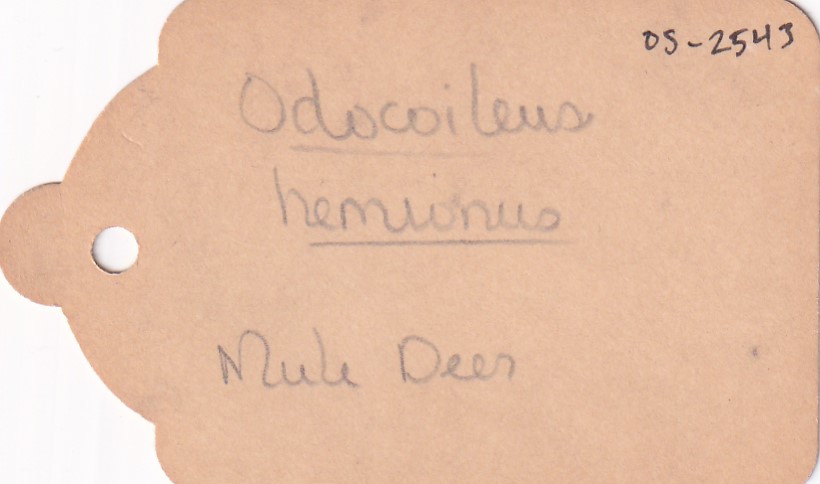 OS-2543
Odocoileus
hemionus
Mule Deer